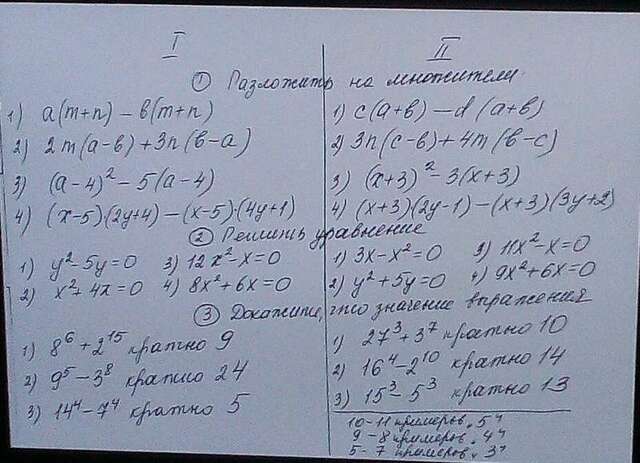 I
II
① Разложить на множители
1) a(m+n) – в(m+n)
2) 2m(a–в)+3n(в–a)
3) (a–4)² – 5(a–4)
4) (x–5)·(2y+4) – (x–5)·(4y+1)
1) c(a+в) – d(a+в)
2) 3n(c–в)+4m(в–c)
3) (x+3)² – 3(x+3)
4) (x+3)(2y–1) – (x+3)(3y+2)
② Решить уравнение
1) y²–5y=0 3) 12x²–x=0
2) x²+4x=0 4) 8x²+6x=0
1) 3x–x²=0 3) 11x²–x=0
2) y²+5y=0 4) 9x²+6x=0
③ Докажите, что значение выражения
1) 8⁶+2¹⁵ кратно 9
2) 9⁵–3⁸ кратно 24
3) 14⁴–7⁴ кратно 5
1) 27³+3⁷ кратно 10
2) 16⁴–2¹⁰ кратно 14
3) 15³–5³ кратно 13
10–11 примеров „5"
9–8 примеров „4"
5–7 примеров „3"